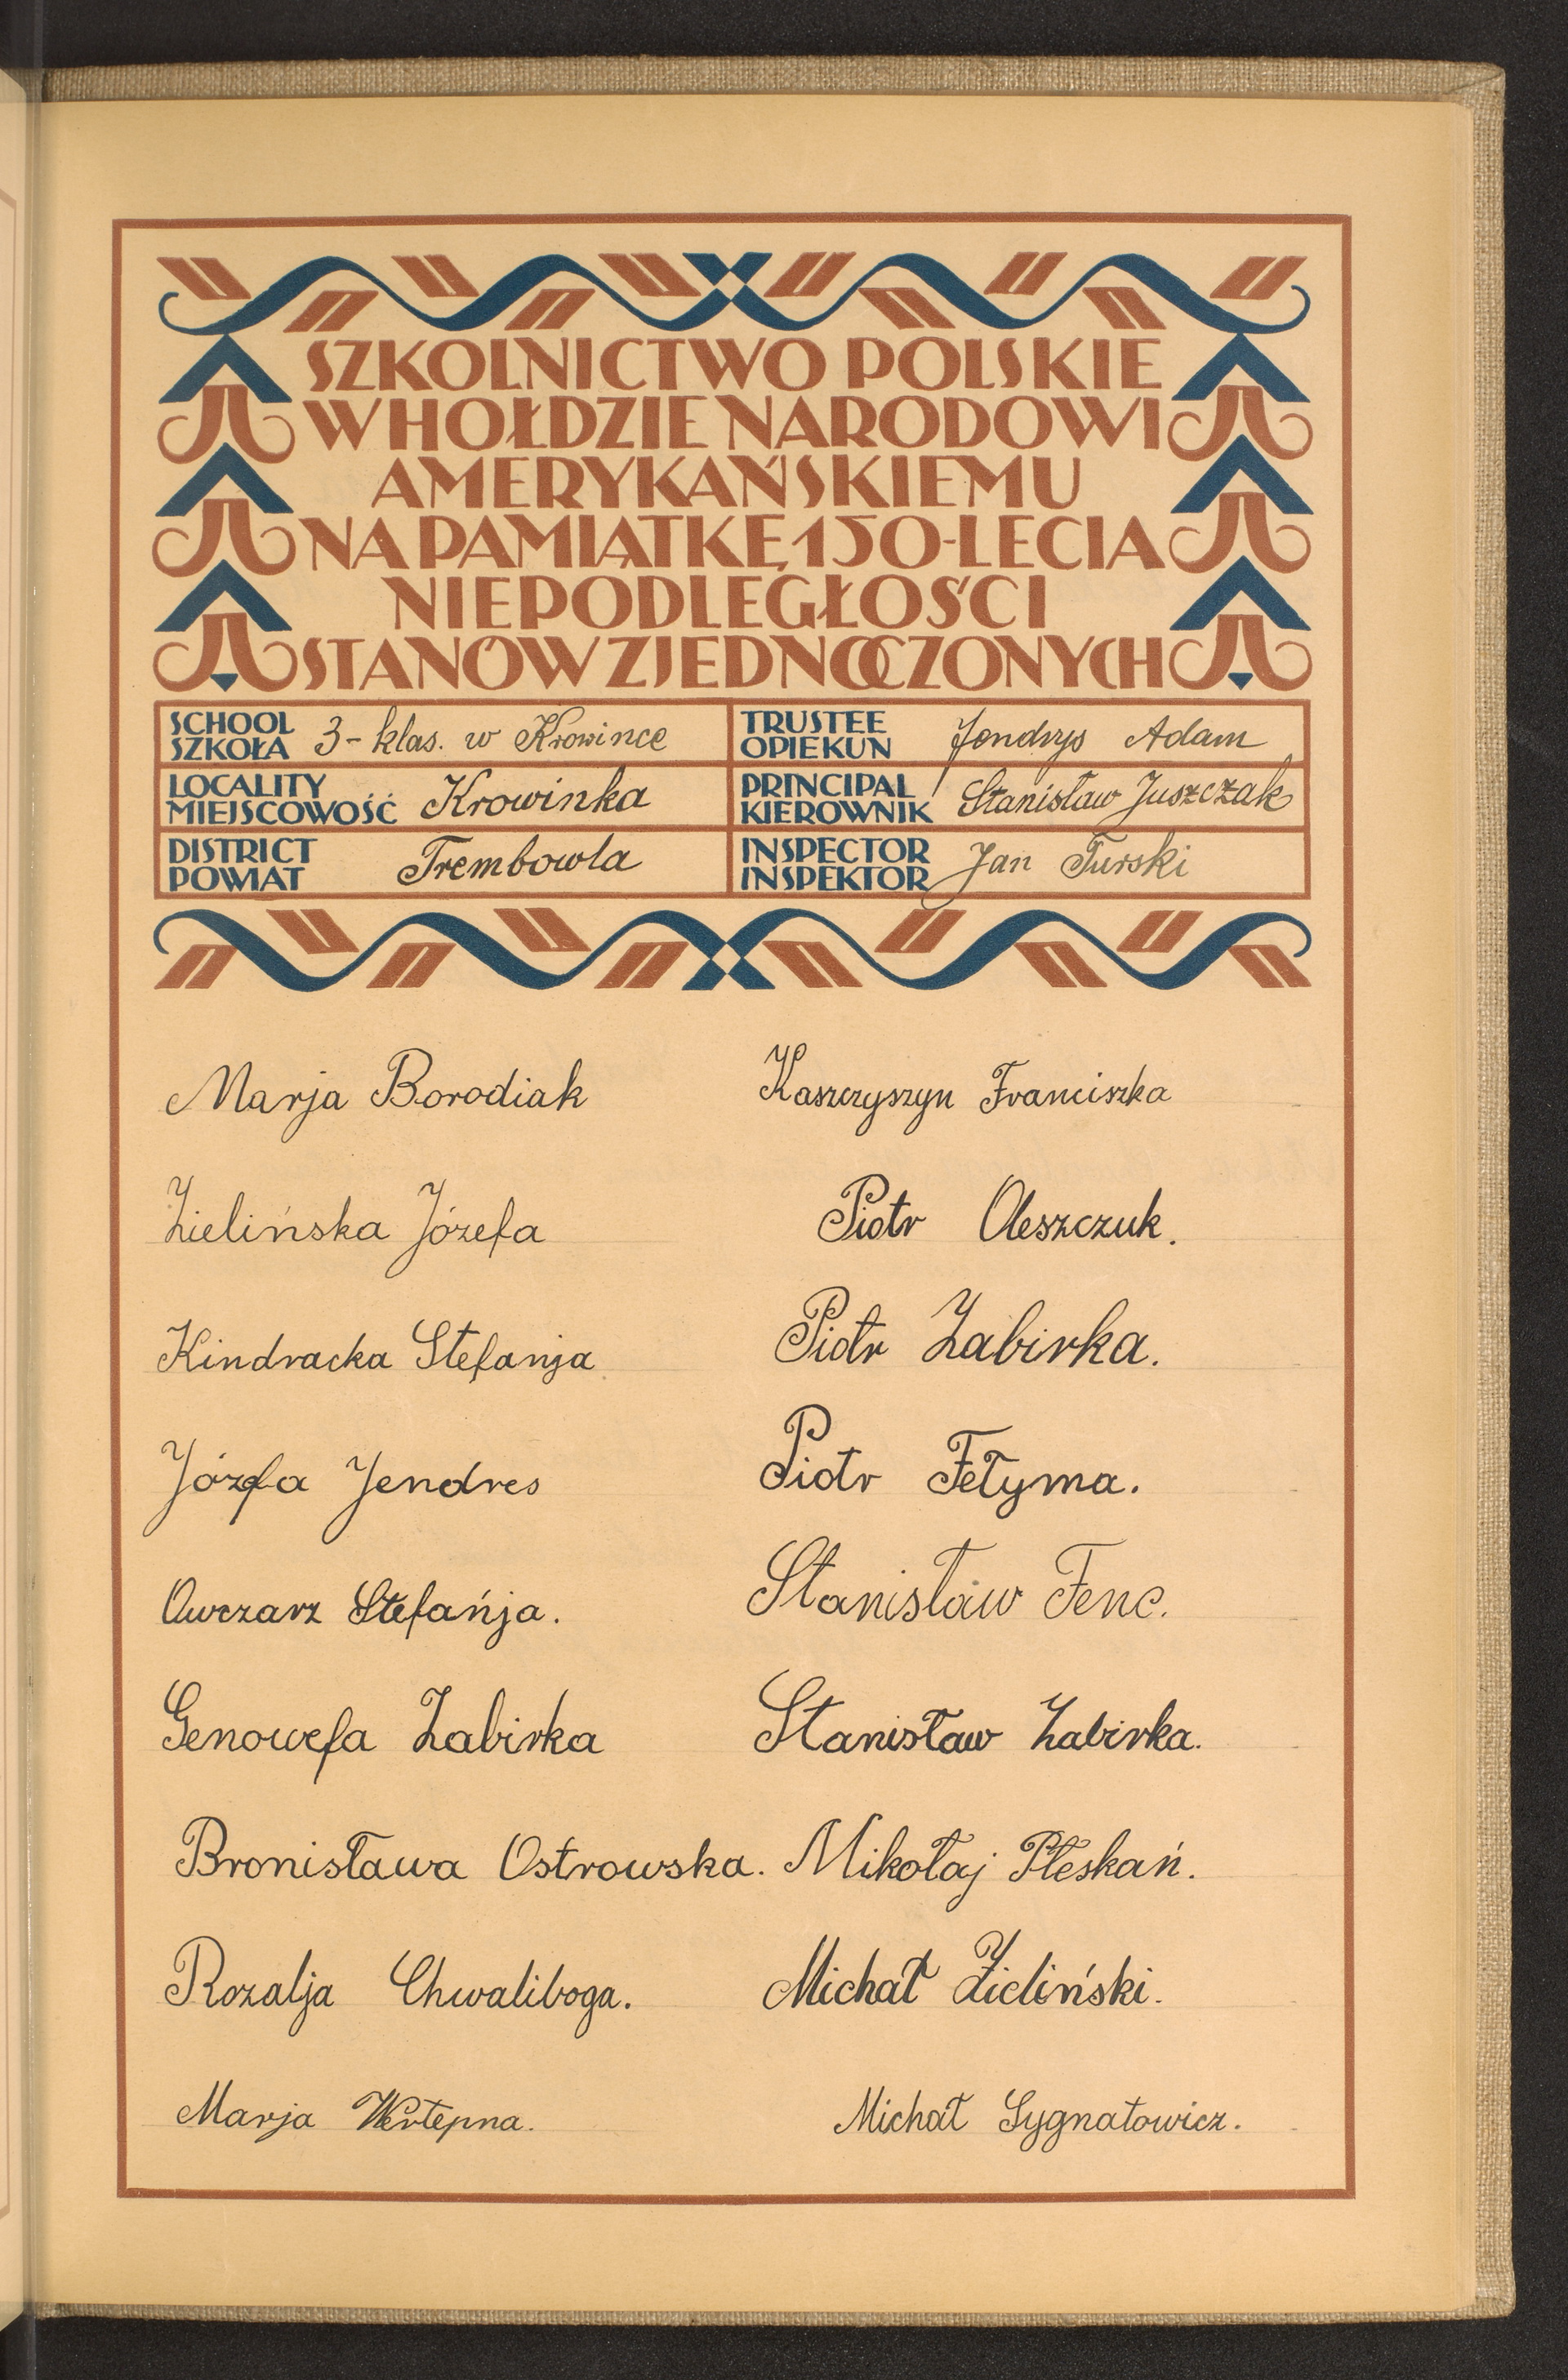 SZKOLNICTWO POLSKIE
W HOŁDZIE NARODOWI
AMERYKAŃSKIEMU
NA PAMIĄTKĘ 150-LECIA
NIEPODLEGŁOŚCI
STANÓW ZJEDNOCZONYCH
SCHOOL
SZKOŁA 3-klas. w Krowince
TRUSTEE
OPIEKUN Jendrys Adam
LOCALITY
MIEJSCOWOŚĆ Krowinka
PRINCIPAL
KIEROWNIK Stanisław Juszczak
DISTRICT
POWIAT Trembowla
INSPECTOR
INSPEKTOR Jan Turski
Marja Borodiak
Zielińska Józefa
Kindracka Stefanja
Józefa Jendres
Owczarz Stefańja.
Genowefa Zabirka
Bronisława Ostrowska.
Rozalja Chwaliboga.
Marja Wertepna.
Kaszczyszyn Franciszka
Piotr Oleszczuk.
Piotr Zabirka.
Piotr Fetyma.
Stanisław Fenc.
Stanisław Zabirka.
Mikołaj Pleskań.
Michał Zieliński.
Michał Sygnatowicz.